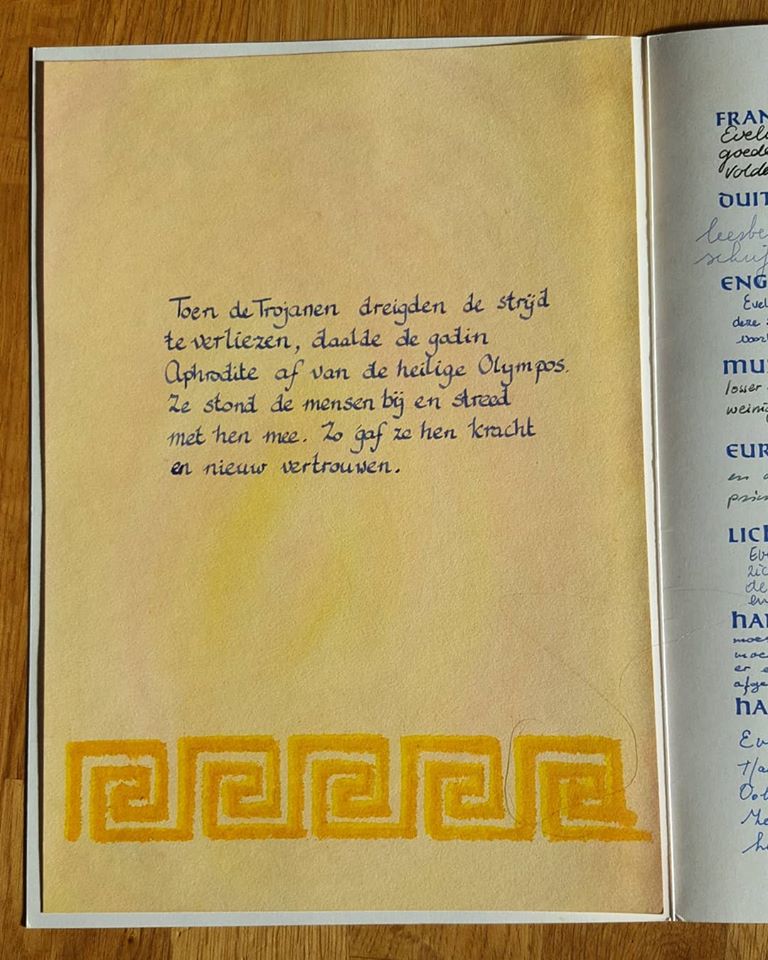 Toen de Trojanen dreigden de strijd
te verliezen, daalde de godin
Aphrodite af van de heilige Olympos.
Ze stond de mensen bij en streed
met hen mee. Zo gaf ze hen kracht
en nieuw vertrouwen.
FRAN
Evel
goede
volde
DUIT
leesbe
schrij
ENG
Evel
deze
voor
MU
weinig
EUR
en
LICH
Ev
de
en
HA
moe
moe
er e
afge
HA
Ev